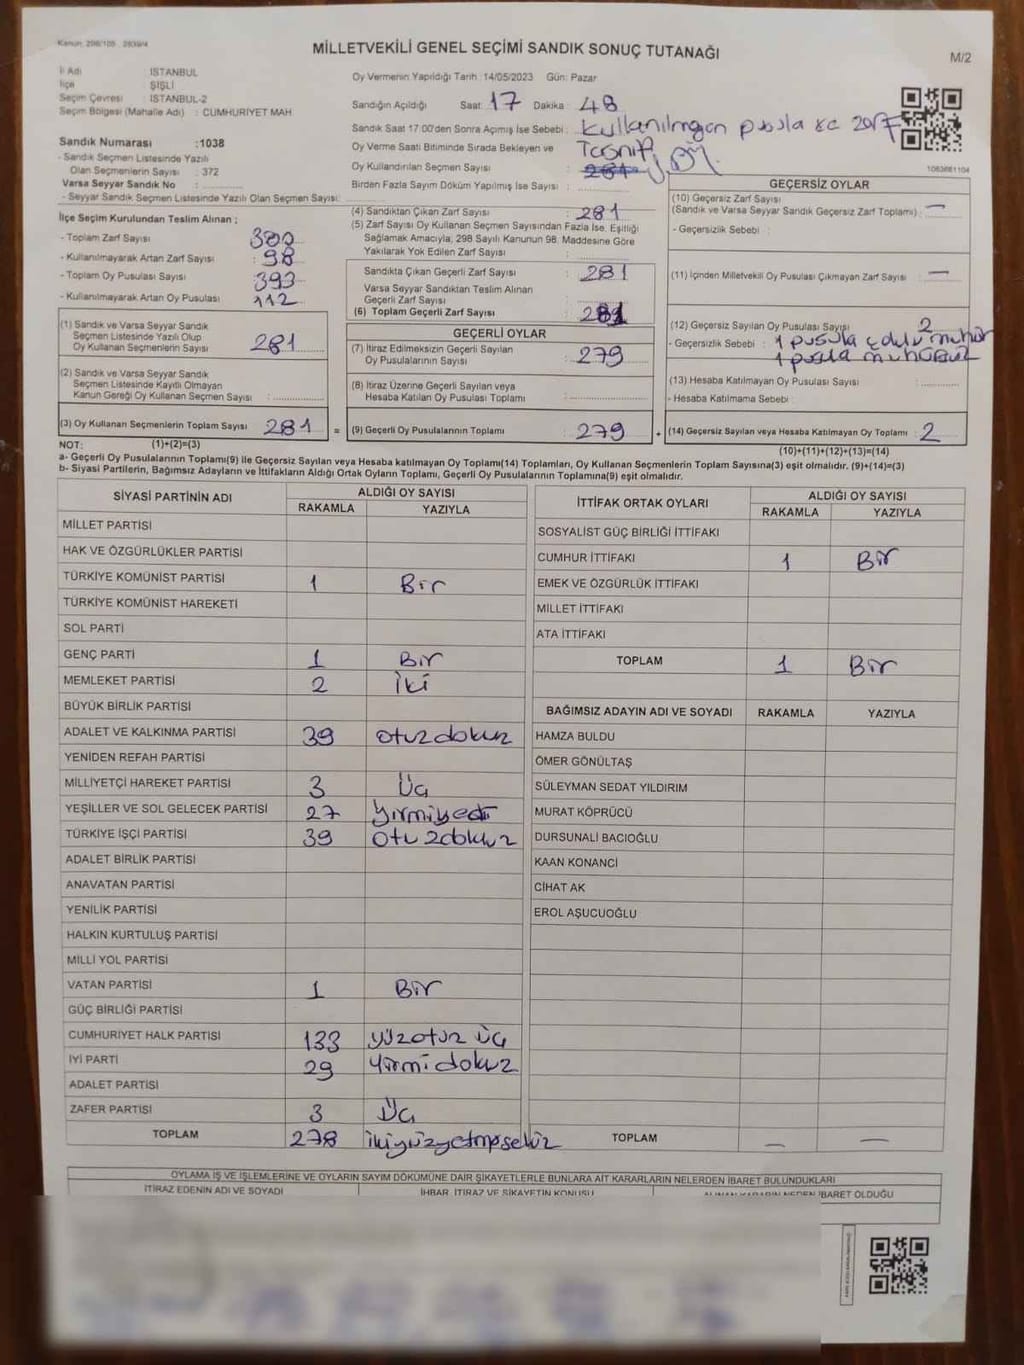 Kanun: 298/105 2839/4
MİLLETVEKİLİ GENEL SEÇİMİ SANDIK SONUÇ TUTANAĞI
M/2
İl Adı : İSTANBUL
İlçe : ŞİŞLİ
Seçim Çevresi : İSTANBUL-2
Seçim Bölgesi (Mahalle Adı) : CUMHURİYET MAH
Oy Vermenin Yapıldığı Tarih :14/05/2023 Gün: Pazar
Sandığın Açıldığı Saat: 17 Dakika : 48
Sandık Saat 17:00'den Sonra Açımış İse Sebebi : Kullanılmayan pusula ve zarf
Tasnifi
Oy Verme Saati Bitiminde Sırada Bekleyen ve
Oy Kullandırılan Seçmen Sayısı :
Birden Fazla Sayım Döküm Yapılmış İse Sayısı :
1063661104
Sandık Numarası :1038
- Sandık Seçmen Listesinde Yazılı
Olan Seçmenlerin Sayısı : 372
Varsa Seyyar Sandık No :
- Seyyar Sandık Seçmen Listesinde Yazılı Olan Seçmen Sayısı:
İlçe Seçim Kurulundan Teslim Alınan ;
- Toplam Zarf Sayısı : 380
- Kullanılmayarak Artan Zarf Sayısı : 98
- Toplam Oy Pusulası Sayısı : 393
- Kullanılmayarak Artan Oy Pusulası : 112
(1) Sandık ve Varsa Seyyar Sandık
Seçmen Listesinde Yazılı Olup
Oy Kullanan Seçmenlerin Sayısı : 281
(2) Sandık ve Varsa Seyyar Sandık
Seçmen Listesinde Kayıtlı Olmayan
Kanun Gereği Oy Kullanan Seçmen Sayısı :
(3) Oy Kullanan Seçmenlerin Toplam Sayısı : 281 =
(4) Sandıktan Çıkan Zarf Sayısı : 281
(5) Zarf Sayısı Oy Kullanan Seçmen Sayısından Fazla İse, Eşitliği
Sağlamak Amacıyla, 298 Sayılı Kanunun 98. Maddesine Göre
Yakılarak Yok Edilen Zarf Sayısı :
Sandıkta Çıkan Geçerli Zarf Sayısı : 281
Varsa Seyyar Sandıktan Teslim Alınan
Geçerli Zarf Sayısı :
(6) Toplam Geçerli Zarf Sayısı : 281
GEÇERLİ OYLAR
(7) İtiraz Edilmeksizin Geçerli Sayılan
Oy Pusulalarının Sayısı : 279
(8) İtiraz Üzerine Geçerli Sayılan veya
Hesaba Katılan Oy Pusulası Toplamı :
(9) Geçerli Oy Pusulalarının Toplamı : 279 +
GEÇERSİZ OYLAR
(10) Geçersiz Zarf Sayısı
(Sandık ve Varsa Seyyar Sandık Geçersiz Zarf Toplamı) : —
- Geçersizlik Sebebi :
(11) İçinden Milletvekili Oy Pusulası Çıkmayan Zarf Sayısı : —
(12) Geçersiz Sayılan Oy Pusulası Sayısı : 2
- Geçersizlik Sebebi : 1 pusula çoklu mühür
1 pusula mühürsüz
(13) Hesaba Katılmayan Oy Pusulası Sayısı :
- Hesaba Katılmama Sebebi :
(14) Geçersiz Sayılan veya Hesaba Katılmayan Oy Toplamı : 2
NOT: (1)+(2)=(3)
(10)+(11)+(12)+(13)=(14)
a- Geçerli Oy Pusulalarının Toplamı(9) ile Geçersiz Sayılan veya Hesaba katılmayan Oy Toplamı(14) Toplamları, Oy Kullanan Seçmenlerin Toplam Sayısına(3) eşit olmalıdır. (9)+(14)=(3)
b- Siyasi Partilerin, Bağımsız Adayların ve İttifakların Aldığı Ortak Oyların Toplamı, Geçerli Oy Pusulalarının Toplamına(9) eşit olmalıdır.
SİYASİ PARTİNİN ADI
ALDIĞI OY SAYISI
RAKAMLA YAZIYLA
MİLLET PARTİSİ
HAK VE ÖZGÜRLÜKLER PARTİSİ
TÜRKİYE KOMÜNİST PARTİSİ 1 Bir
TÜRKİYE KOMÜNİST HAREKETİ
SOL PARTİ
GENÇ PARTİ 1 Bir
MEMLEKET PARTİSİ 2 iki
BÜYÜK BİRLİK PARTİSİ
ADALET VE KALKINMA PARTİSİ 39 otuzdokuz
YENİDEN REFAH PARTİSİ
MİLLİYETÇİ HAREKET PARTİSİ 3 Üç
YEŞİLLER VE SOL GELECEK PARTİSİ 27 yirmiyedi
TÜRKİYE İŞÇİ PARTİSİ 39 otuzdokuz
ADALET BİRLİK PARTİSİ
ANAVATAN PARTİSİ
YENİLİK PARTİSİ
HALKIN KURTULUŞ PARTİSİ
MİLLİ YOL PARTİSİ
VATAN PARTİSİ 1 Bir
GÜÇ BİRLİĞİ PARTİSİ
CUMHURİYET HALK PARTİSİ 133 yüzotuz üç
İYİ PARTİ 29 yirmidokuz
ADALET PARTİSİ
ZAFER PARTİSİ 3 Üç
TOPLAM 278 ikiyüzyetmişsekiz
İTTİFAK ORTAK OYLARI
ALDIĞI OY SAYISI
RAKAMLA YAZIYLA
SOSYALİST GÜÇ BİRLİĞİ İTTİFAKI
CUMHUR İTTİFAKI 1 Bir
EMEK VE ÖZGÜRLÜK İTTİFAKI
MİLLET İTTİFAKI
ATA İTTİFAKI
TOPLAM 1 Bir
BAĞIMSIZ ADAYIN ADI VE SOYADI RAKAMLA YAZIYLA
HAMZA BULDU
ÖMER GÖNÜLTAŞ
SÜLEYMAN SEDAT YILDIRIM
MURAT KÖPRÜCÜ
DURSUNALİ BACIOĞLU
KAAN KONANCİ
CİHAT AK
EROL AŞUCUOĞLU
TOPLAM — —
OYLAMA İŞ VE İŞLEMLERİNE VE OYLARIN SAYIM DÖKÜMÜNE DAİR ŞİKAYETLERLE BUNLARA AİT KARARLARIN NELERDEN İBARET BULUNDUKLARI
İTİRAZ EDENİN ADI VE SOYADI
İHBAR, İTİRAZ VE ŞİKAYETİN KONUSU
ALINAN KARARIN NEDEN İBARET OLDUĞU